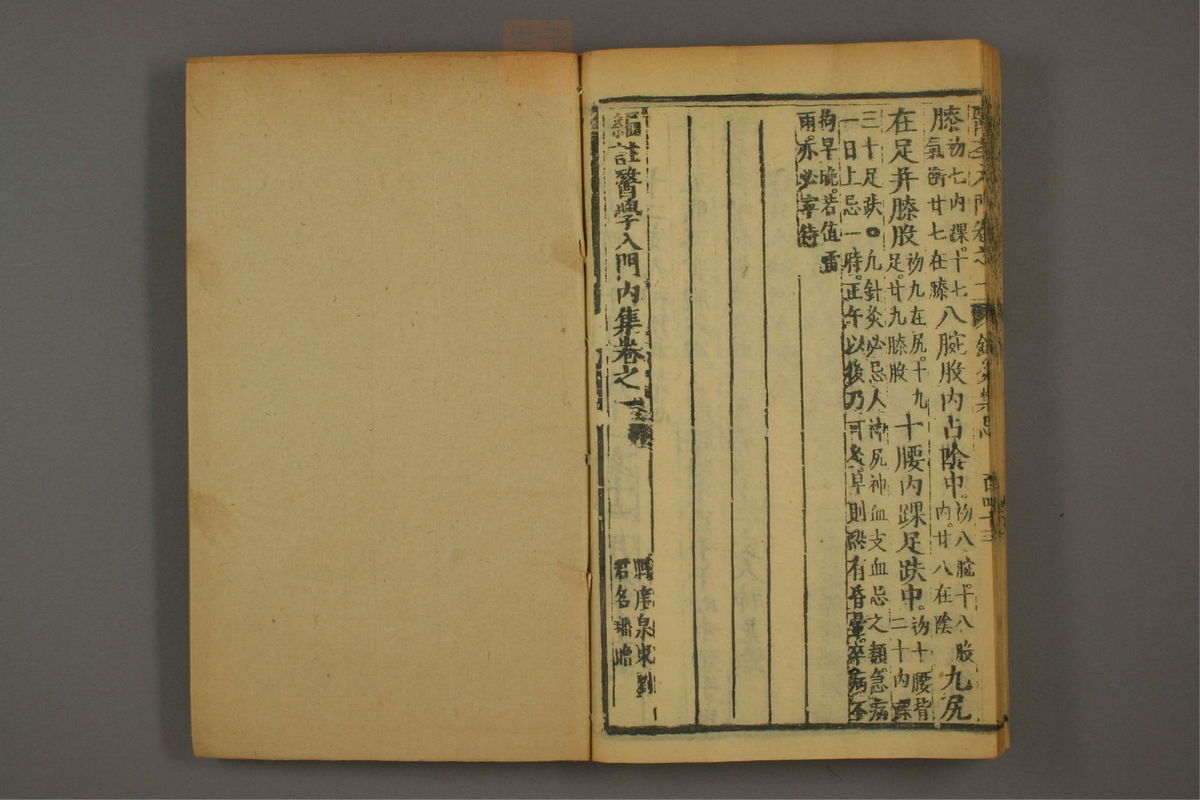 醫學入門卷之一 針灸禁忌 百四十三
膝初七內踝。十七
氣衝廿七在膝
八腕股內占陰中。初八腕。十八股
內。廿八在陰
九尻
在足并膝股初九在尻。十九
足。廿九膝股
十腰內踝足趺中。初十腰背
二十內踝
三十足趺。○凡針灸必忌人神尻神血支血忌之類。急病
一日上忌一時。正午以後乃可灸。早則恐有昏暈。卒病不
拘早晚。若值雷
雨。亦必寧待
編註醫學入門內集卷之一
縣庠泉東劉
君名璠贍